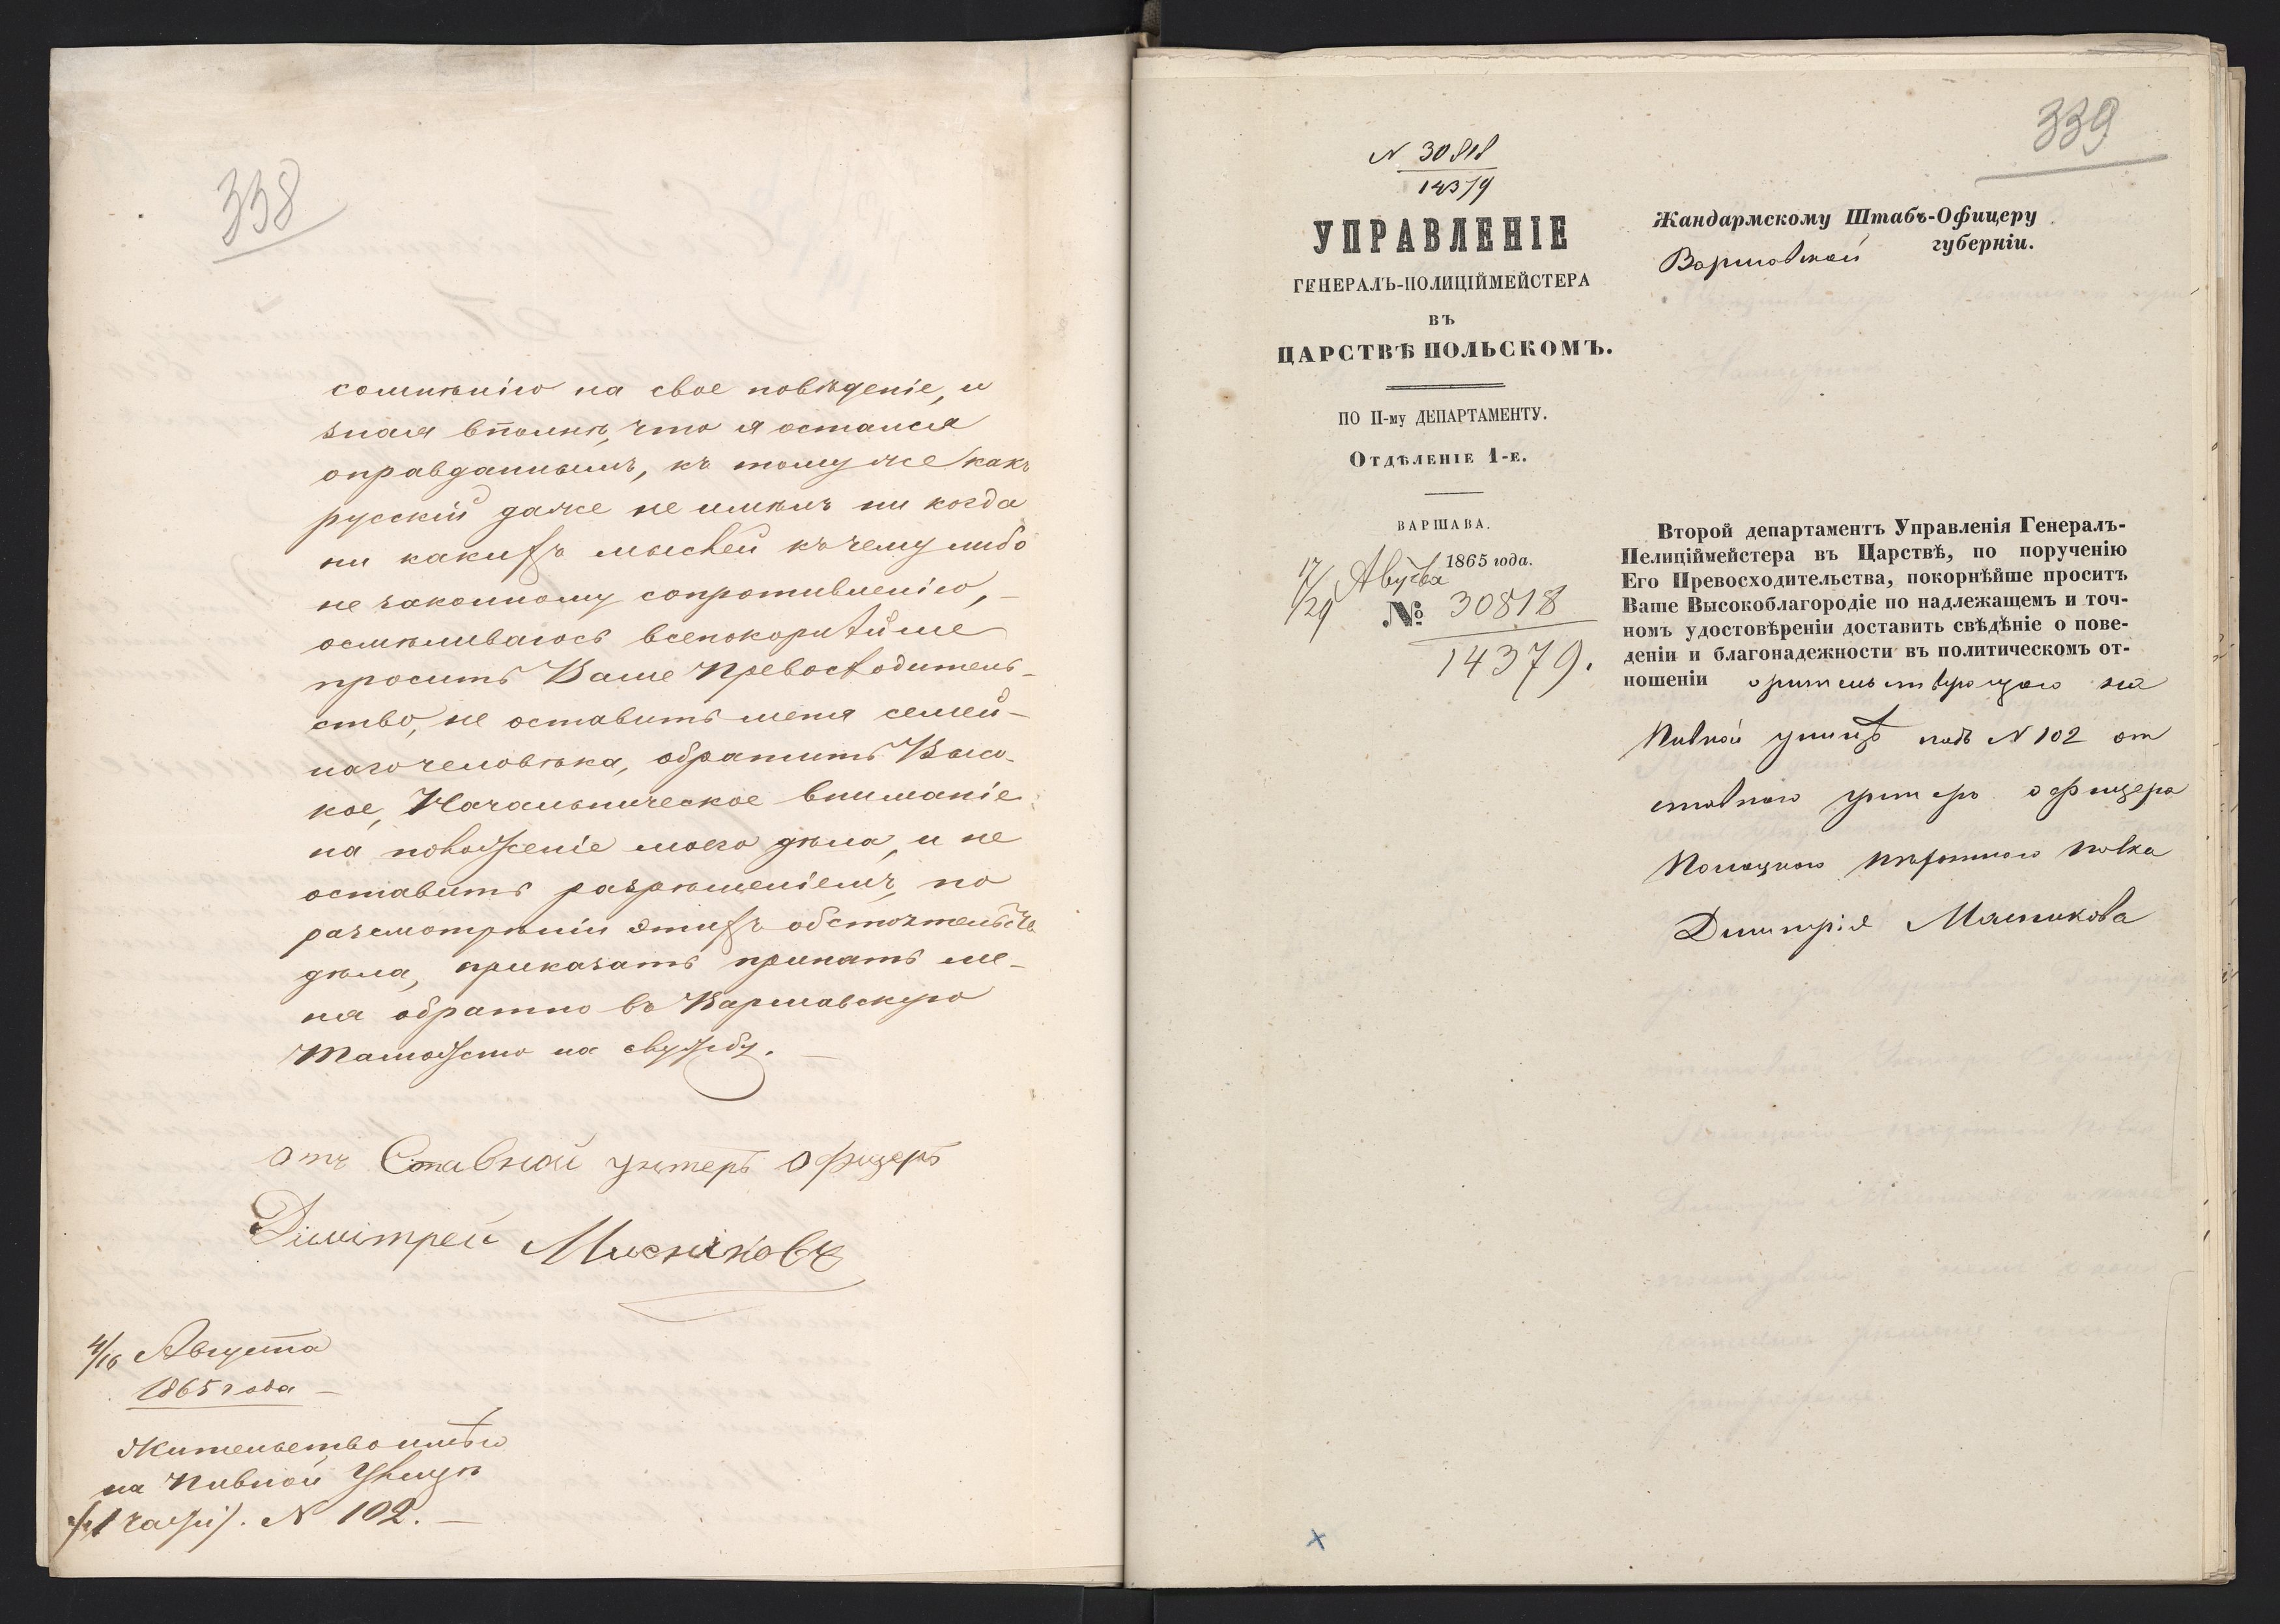 338
сомнѣнію на свое повѣденіе, и
зная вполнѣ, что я остался
оправданнымъ, къ тому же какъ
русскій даже не имѣлъ ни когда
ни какихъ мыслей къ чему либо
не законному сопротивленію,
осмѣливаюсь всепокорнѣйше
просить Ваше Превосходитель-
ство, не оставить меня семей-
наго человѣка, обратить Высо-
кое, Начальническое вниманіе
на положеніе моего дѣла, и не
оставить разрѣшеніемъ, по
разсмотрѣніи этихъ обстоятельствъ
дѣла, приказать принять ме-
ня обратно въ Варшавскую
Таможню на службу.
отъ Ставной унтеръ Офицеръ
Димітрей Мясніковъ
4/16 Августа
1865 года
Жительство имѣю
на Пивной Улицѣ
1 части). N 102.
339
N 30818
14379
УПРАВЛЕНІЕ
ГЕНЕРАЛЪ-ПОЛИЦІЙМЕЙСТЕРА
ВЪ
ЦАРСТВѢ ПОЛЬСКОМЪ.
ПО II-му ДЕПАРТАМЕНТУ.
Отдѣленіе 1-е.
ВАРШАВА.
17/29 Августа 1865 года.
№ 30818
14379.
Жандармскому Штабъ-Офицеру
Варшавской губерніи.
Второй департаментъ Управленія Генералъ-
Пелиціймейстера въ Царствѣ, по порученію
Его Превосходительства, покорнѣйше проситъ
Ваше Высокоблагородіе по надлежащемъ и точ-
номъ удостовѣреніи доставить свѣдѣніе о пове-
деніи и благонадежности въ политическомъ от-
ношеніи жительствующаго на
Пивной улицѣ подъ N 102 от
ставнаго унтеръ офицера
Полоцкаго пѣхотнаго полка
Димитрія Мясникова